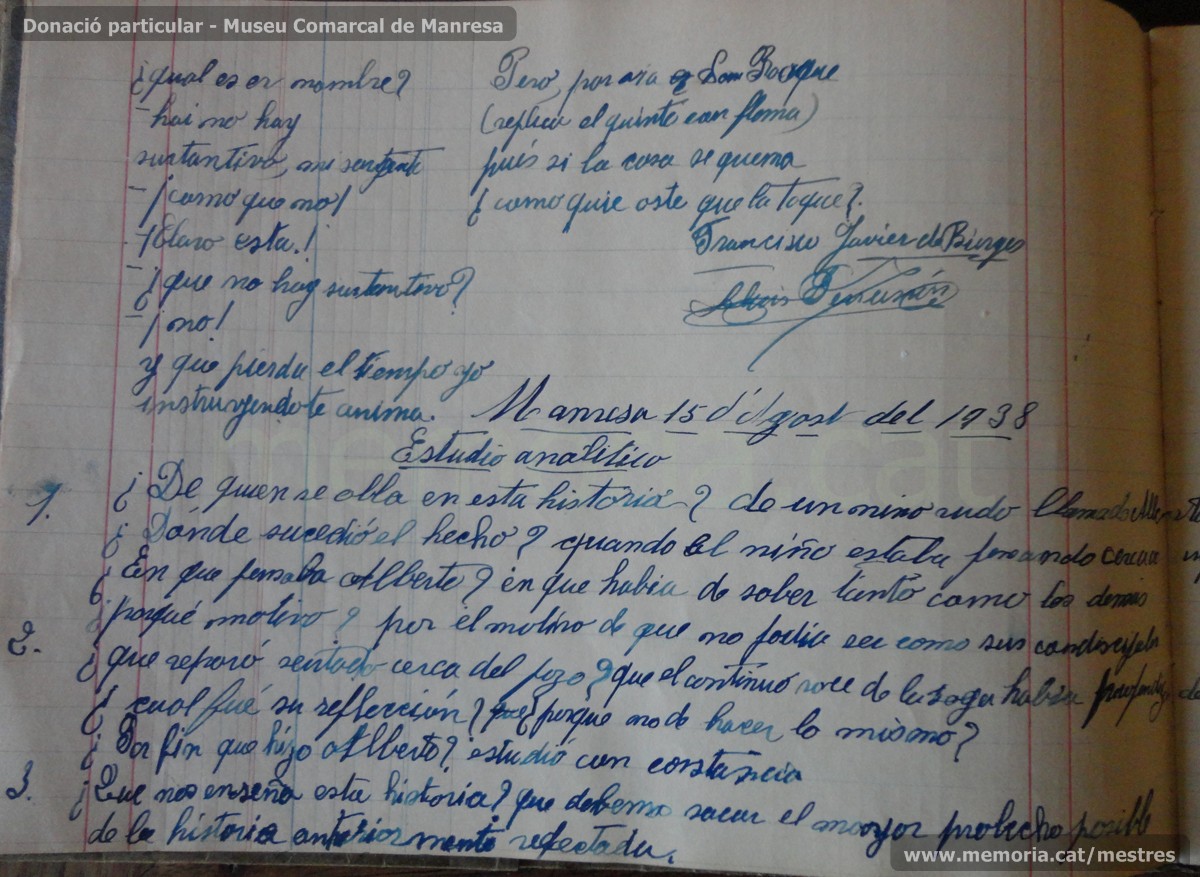 Donació particular - Museu Comarcal de Manresa
¿qual es er nombre?
- hai no hay
sustantivo, mi sargente
- ¡como que no!
- ¡Claro esta.!
- ¿que no hay sustantivo?
- ¡no!
y que pierda el tiempo yo
instruyendote anima.
Pero, por ara San Rocque
(replica el quinto can flema)
pués si la cosa se quema
¿como quie oste que la toque?.
Francisco Javier de Búrgos
Manresa 15 d'Agost del 1938
Estudio analitico
1. ¿De quien se abla en esta historia? de un nino rudo llamado
¿Dónde sucedió el hecho? quando el niño estaba pensando cerca
¿En que pensaba Alberto? en que habia de saber tanto como los demás
2. ¿porqué motivo? por el motivo de que no podia ser como sus
¿que reparó sentado cerca del pozo? que el continuo roce de la soga habia
¿cual fué su reflección? porque no de hacer lo mismo?
¿Por fin que hizo Alberto? estudió con costancia
3. ¿Que nos enseña esta historia? que debemo sacar el mayor probecho posible
de la historia anteriormente
www.memoria.cat/mestres